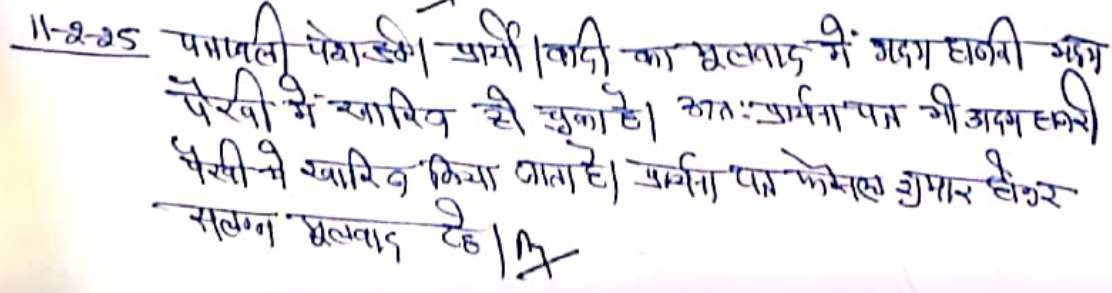 11-2-25 पत्रावली पेश हुई। प्रार्थी/वादी का मूलवाद में अदम हाजरी अदम
पैरवी में खारिज हो चुका है। अतः प्रार्थना पत्र भी अदम हाजरी
पैरवी में खारिज किया जाता है। प्रार्थना पत्र फैसल शुमार होकर
सलग्न मूलवाद रहे।